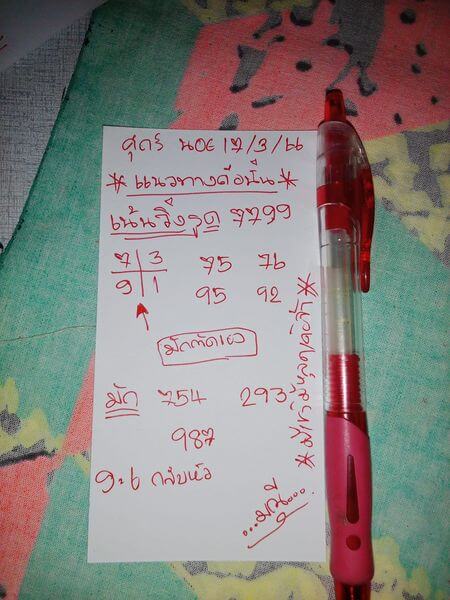 สูตร นอย 17/3/66
*แนวทางคือนั้น*
เน้นวิ่งรูด 7799
7 3
9 1
75 76
95 92
มักตัดเอง
มัก 754 293
987
9-6 กลับหัว
...มณี...